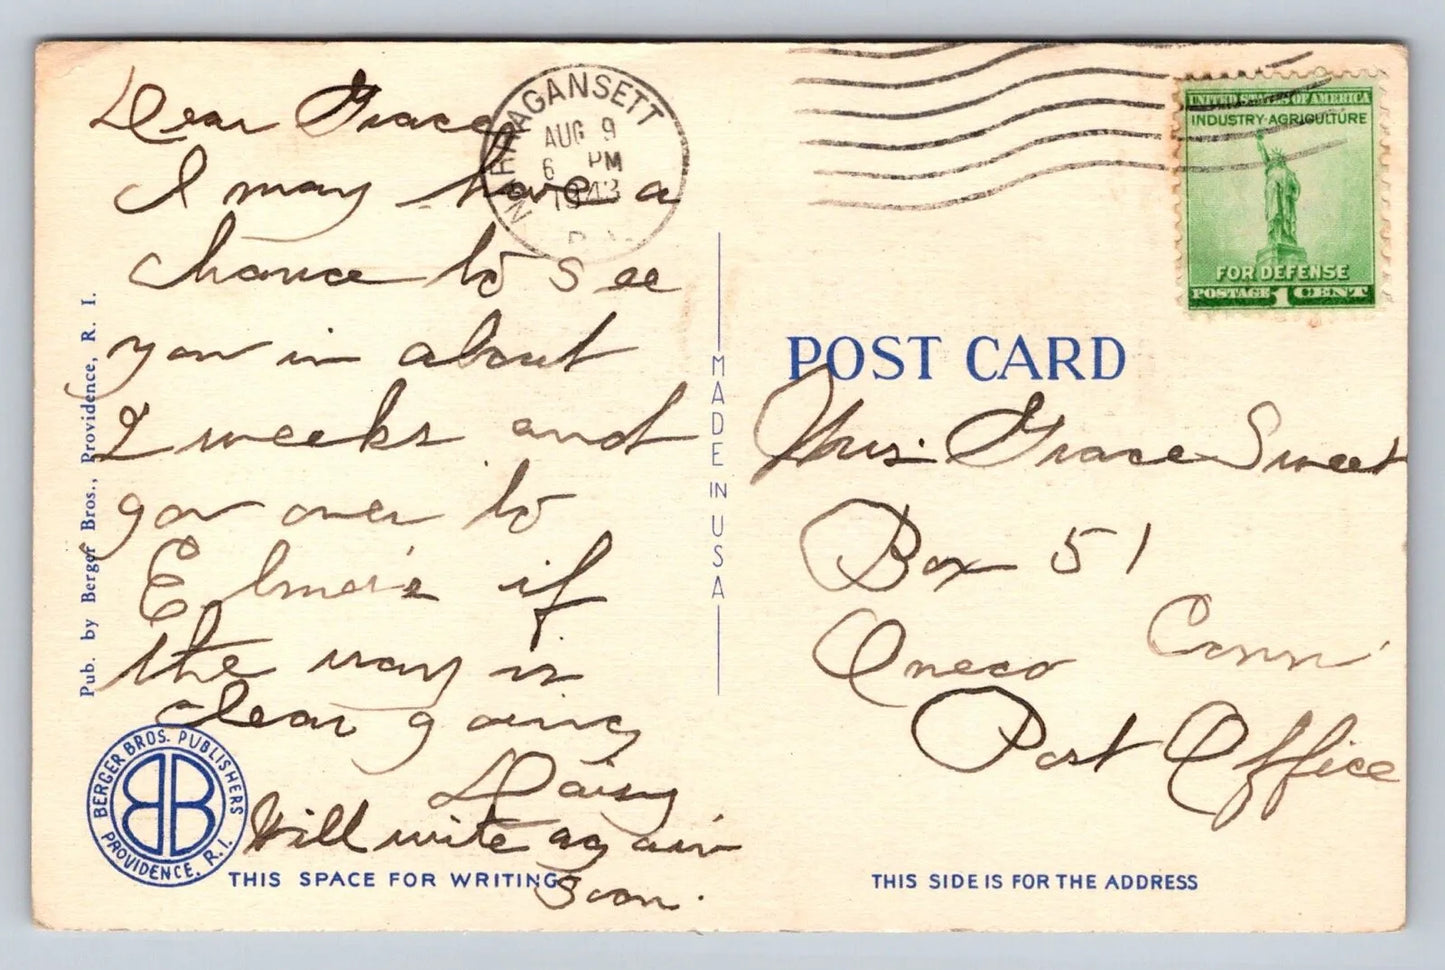 Dear Grace
I may have a
chance to see
you in about
2 weeks and
go over to
Elmer's if
the way is
clear going
Daisy
Will write again
soon.
NARRAGANSETT
AUG 9
6 PM
1943
R.I.
UNITED STATES OF AMERICA
INDUSTRY·AGRICULTURE
FOR DEFENSE
POSTAGE 1 CENT
POST CARD
Mrs. Grace Sweet
Box 51
Oneco Conn
Post Office
Pub. by Berger Bros., Providence, R. I.
MADE IN USA
BERGER BROS. PUBLISHERS
BB
PROVIDENCE, R.I.
THIS SPACE FOR WRITING
THIS SIDE IS FOR THE ADDRESS